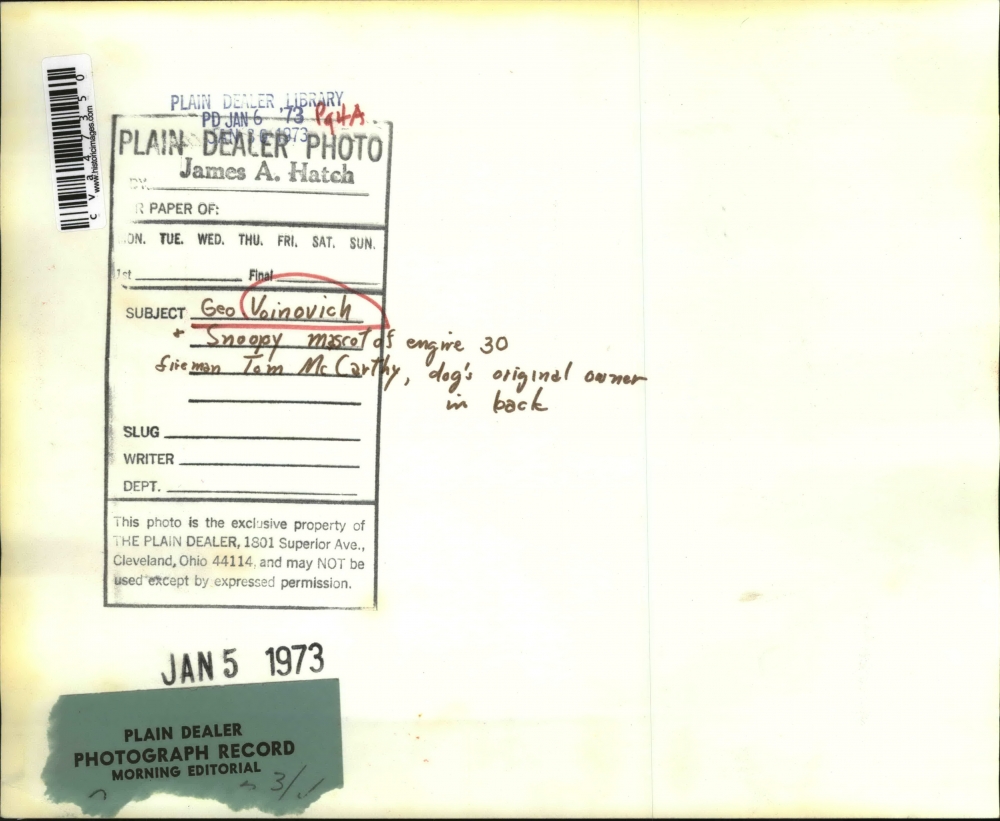 www.historicimages.com
PLAIN DEALER LIBRARY
PD JAN 6 '73 Pg 4A
1973
PLAIN DEALER PHOTO
James A. Hatch
R PAPER OF:
ON. TUE. WED. THU. FRI. SAT. SUN.
1st Final
SUBJECT Geo Voinovich
+ Snoopy mascot of engine 30
fireman Tom McCarthy, dog's original owner
in back
SLUG
WRITER
DEPT.
This photo is the exclusive property of
THE PLAIN DEALER, 1801 Superior Ave.,
Cleveland, Ohio 44114, and may NOT be
used except by expressed permission.
JAN 5 1973
PLAIN DEALER
PHOTOGRAPH RECORD
MORNING EDITORIAL